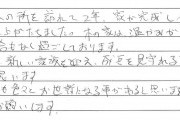 を訪れて2年、家が完成し
たちました。木の家は、温かみがあ
なく過ごしております。
新しい家族を迎え、成長を見守れる
思います
も色々とお世話になる事があると思いま
お願いします。